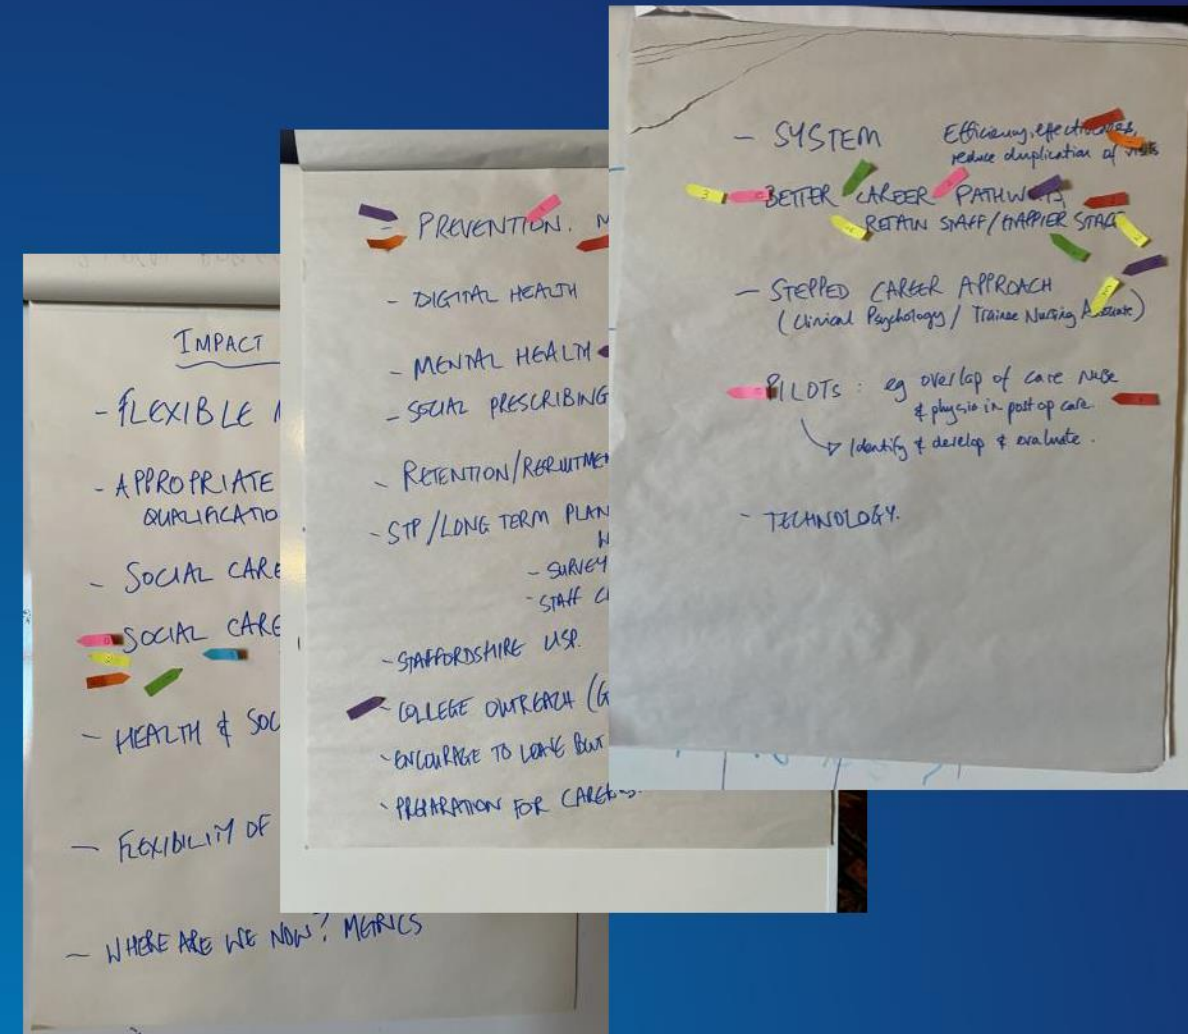 IMPACT
- FLEXIBLE
- APPROPRIATE
QUALIFICATIO
- SOCIAL CARE
- SOCIAL CARE
- HEALTH & SOC
- FLEXIBILITY OF
- WHERE ARE WE NOW? METRICS
- PREVENTION. M
- DIGITAL HEALTH
- MENTAL HEALTH
- SOCIAL PRESCRIBING
- RETENTION/RECRUITMEN
- STP/LONG TERM PLAN
- SURVEY
- STAFF C
- STAFFORDSHIRE USP.
- COLLEGE OUTREACH (G
- ENCOURAGE TO LEAVE BUT
- PREPARATION FOR CAREERS.
- SYSTEM Efficiency, effectiveness,
reduce duplication of visits
BETTER CAREER PATHWAYS
RETAIN STAFF/HAPPIER STAFF
- STEPPED CAREER APPROACH
(Clinical Psychology / Trainee Nursing Associate)
PILOTS: eg overlap of care Nurse
& physio in post op care.
Identify & develop & evaluate.
- TECHNOLOGY.